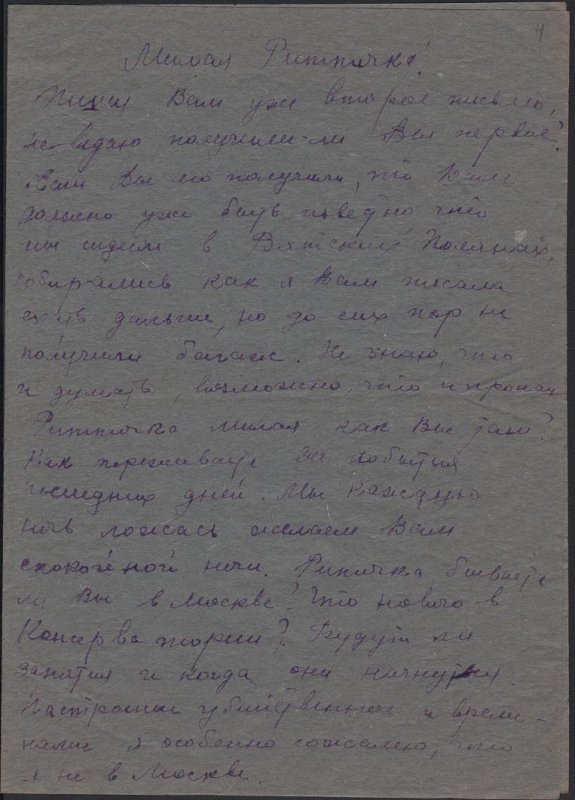 4
Милая Риточка!
Пишу Вам уже второе письмо,
не видно получили-ли Вы первое?
Если Вы его получили, то Вам
должно уже быть известно что
мы сидели в Вятских Полянах,
собирались как я Вам писала
ехать дальше, но до сих пор не
получили багаж. Не знаю, что
и думать, возможно, что и пропал
Риточка милая как Вы там?
Как переживаете все события
последних дней. Мы каждую
ночь ложась желаем Вам
спокойной ночи. Риточка бываете
ли Вы в Москве? Что нового в
Консерватории? Будут ли
занятия и когда они начнутся
Настроение убийственное и време-
нами я особенно сожалею, что
я не в Москве.